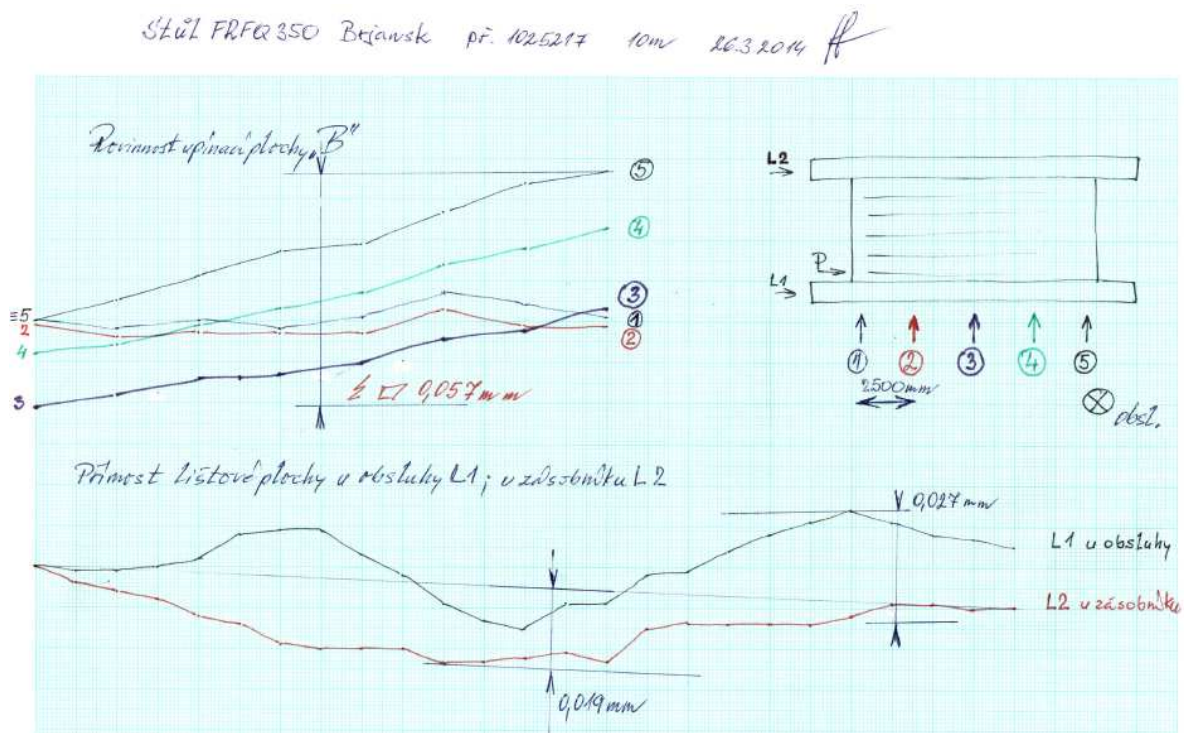 Stůl FRFQ 350 Brjansk př. 1025217 10m 26.3.2014
Rovinnost upínací plochy „B"
5
4
3
1
2
≡5
2
4
3
0,057 mm
L2
P
L1
1 2 3 4 5
2500mm
obsl.
Přímost lištové plochy u obsluhy L1; u zásobníku L2
0,027 mm
L1 u obsluhy
L2 u zásobníku
0,019 mm